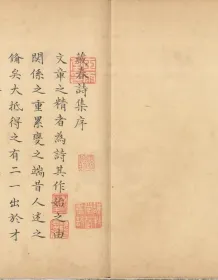 藏春詩集序
文章之精者為詩其作始之由
関係之重累變之端昔人述之
備矣大抵得之有二一出於才